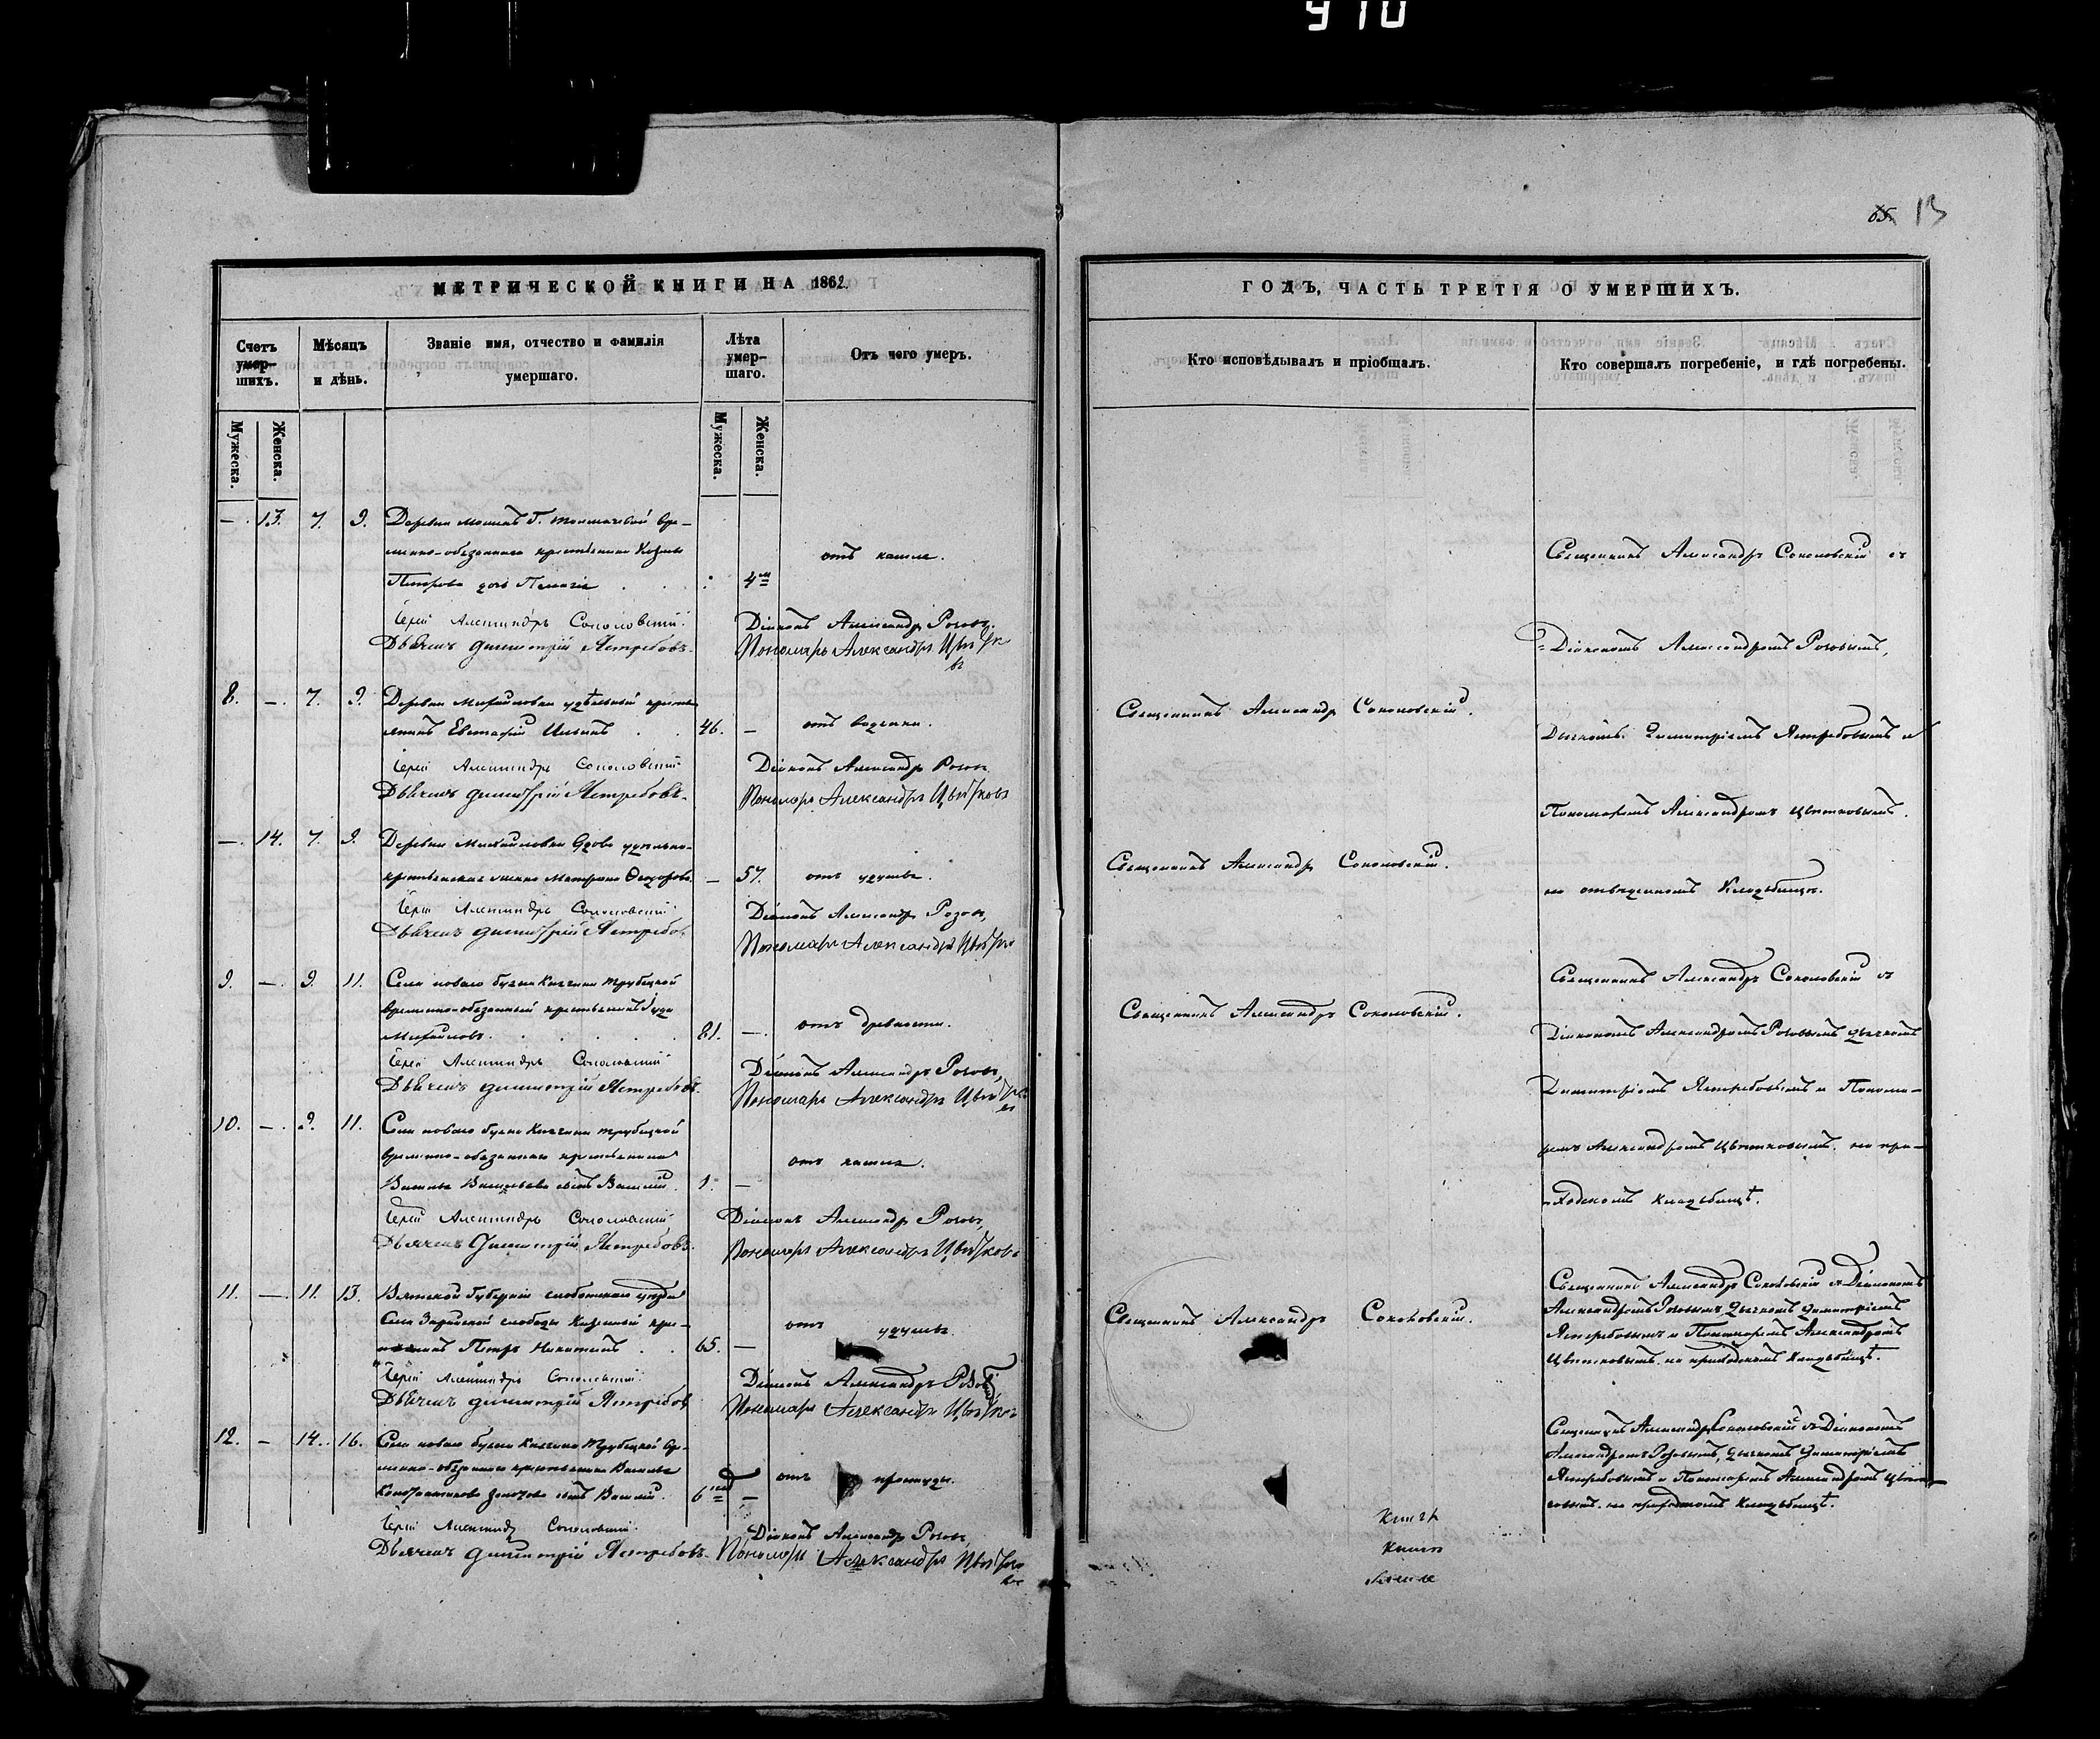 910
65. 13
МЕТРИЧЕСКОЙ КНИГИ НА 1862.
Счетъ умер-шихъ.
Мѣсяцъ и дѣнь.
Званіе имя, отчество и фамилія умершаго.
Лѣта умер-шаго.
Отъ чего умеръ.
Мужеска.
Женска.
Мужеска.
Женска.
—. 13. 7. 9. Деревни
менно-обязаннаго крестьянина Козмы
отъ кашля.
Петрова дочь Пелагія 4м
Іерей Александръ Соколовскій. Діаконъ Александръ Розовъ.
Дьячекъ Димитрій Ястребовъ. Пономарь Александръ Цвѣтковъ
8. —. 7. 9. Деревни Михайловки удѣльный кресть-
янинъ Евстафій Ильинъ 46. — отъ водянки.
Іерей Александръ Соколовскій. Діаконъ Александръ Розовъ
Дьячекъ Димитрій Ястребовъ. Пономарь Александръ Цвѣтковъ
—. 14. 7. 9. Деревни Михайловки вдова удѣльно-
крестьянская жена Матрона Ѳедорова. — 57. отъ удушья.
Іерей Александръ Соколовскій. Діаконъ Александръ Розовъ,
Дьячекъ Димитрій Ястребовъ Пономарь Александръ Цвѣтков
9. —. 9. 11. Села новаго буяна Княгини Трубецкой
временно-обязанный крестьянинъ Іуда
Михайловъ. 81. —. отъ древности.
Іерей Александръ Соколовскій Діаконъ Александръ Розовъ,
Дьячекъ Димитрій Ястребовъ. Пономарь Александръ Цвѣтковъ
10. —. 9. 11. Села новаго буяна Княгини Трубецкой
временно-обязаннаго крестьянина
отъ кашля.
Василья Васильева сынъ Василій. 1. —
Іерей Александръ Соколовскій Діаконъ Александръ Розовъ,
Дьячекъ Димитрій Ястребовъ. Пономарь Александръ Цвѣтковъ
11. —. 11. 13. Вятской Губерніи слободскаго уѣзда
Села слободы Казенный кре-
отъ удушья.
Петръ Никитинъ 65. —
Іерей Александръ Соколовскій. Діаконъ Александръ Розовъ,
Дьячекъ Димитрій Ястребов Пономарь Александръ Цвѣтков
12. — 14. 16. Села новаго буяна Княгини Трубецкой вре-
менно-обязаннаго крестьянина Василья
отъ простуды.
Константинова сынъ Василій. 6 нед —
Іерей Александръ Соколовскій. Діаконъ Александръ Розовъ,
Дьячекъ Димитрій Ястребовъ. Пономарь Александръ Цвѣтковъ
ГОДЪ, ЧАСТЬ ТРЕТІЯ О УМЕРШИХЪ.
Кто исповѣдывалъ и пріобщалъ.
Кто совершалъ погребеніе, и гдѣ погребены.
Священникъ Александръ Соколовскій съ
Діакономъ Александромъ Розовымъ,
Священникъ Александръ Соколовскій.
Дьячкомъ Димитріемъ Ястребовымъ и
Пономаремъ Александромъ Цвѣтковымъ.
Священникъ Александръ Соколовскій.
на отведенномъ Кладбищѣ.
Священникъ Александръ Соколовскій съ
Священникъ Александръ Соколовскій.
Діакономъ Александромъ Розовымъ дьячкомъ
Димитріемъ Ястребовымъ и Понома-
ремъ Александромъ Цвѣтковымъ. на при-
ходскомъ кладбищѣ.
Священникъ Александръ Соколовскій съ Діакономъ
Священникъ Александръ Соколовскій.
Александромъ Розовымъ дьячкомъ Димитріемъ
Ястребовымъ и Пономаремъ Александромъ
Цвѣтковымъ. на приходскомъ Кладбищѣ.
Священникъ Александръ Соколовскій съ Діакономъ
Александромъ Розовымъ, дьячкомъ Димитріемъ
Ястребовымъ и Пономаремъ Александромъ Цвѣт-
ковымъ. на приходскомъ кладбищѣ.